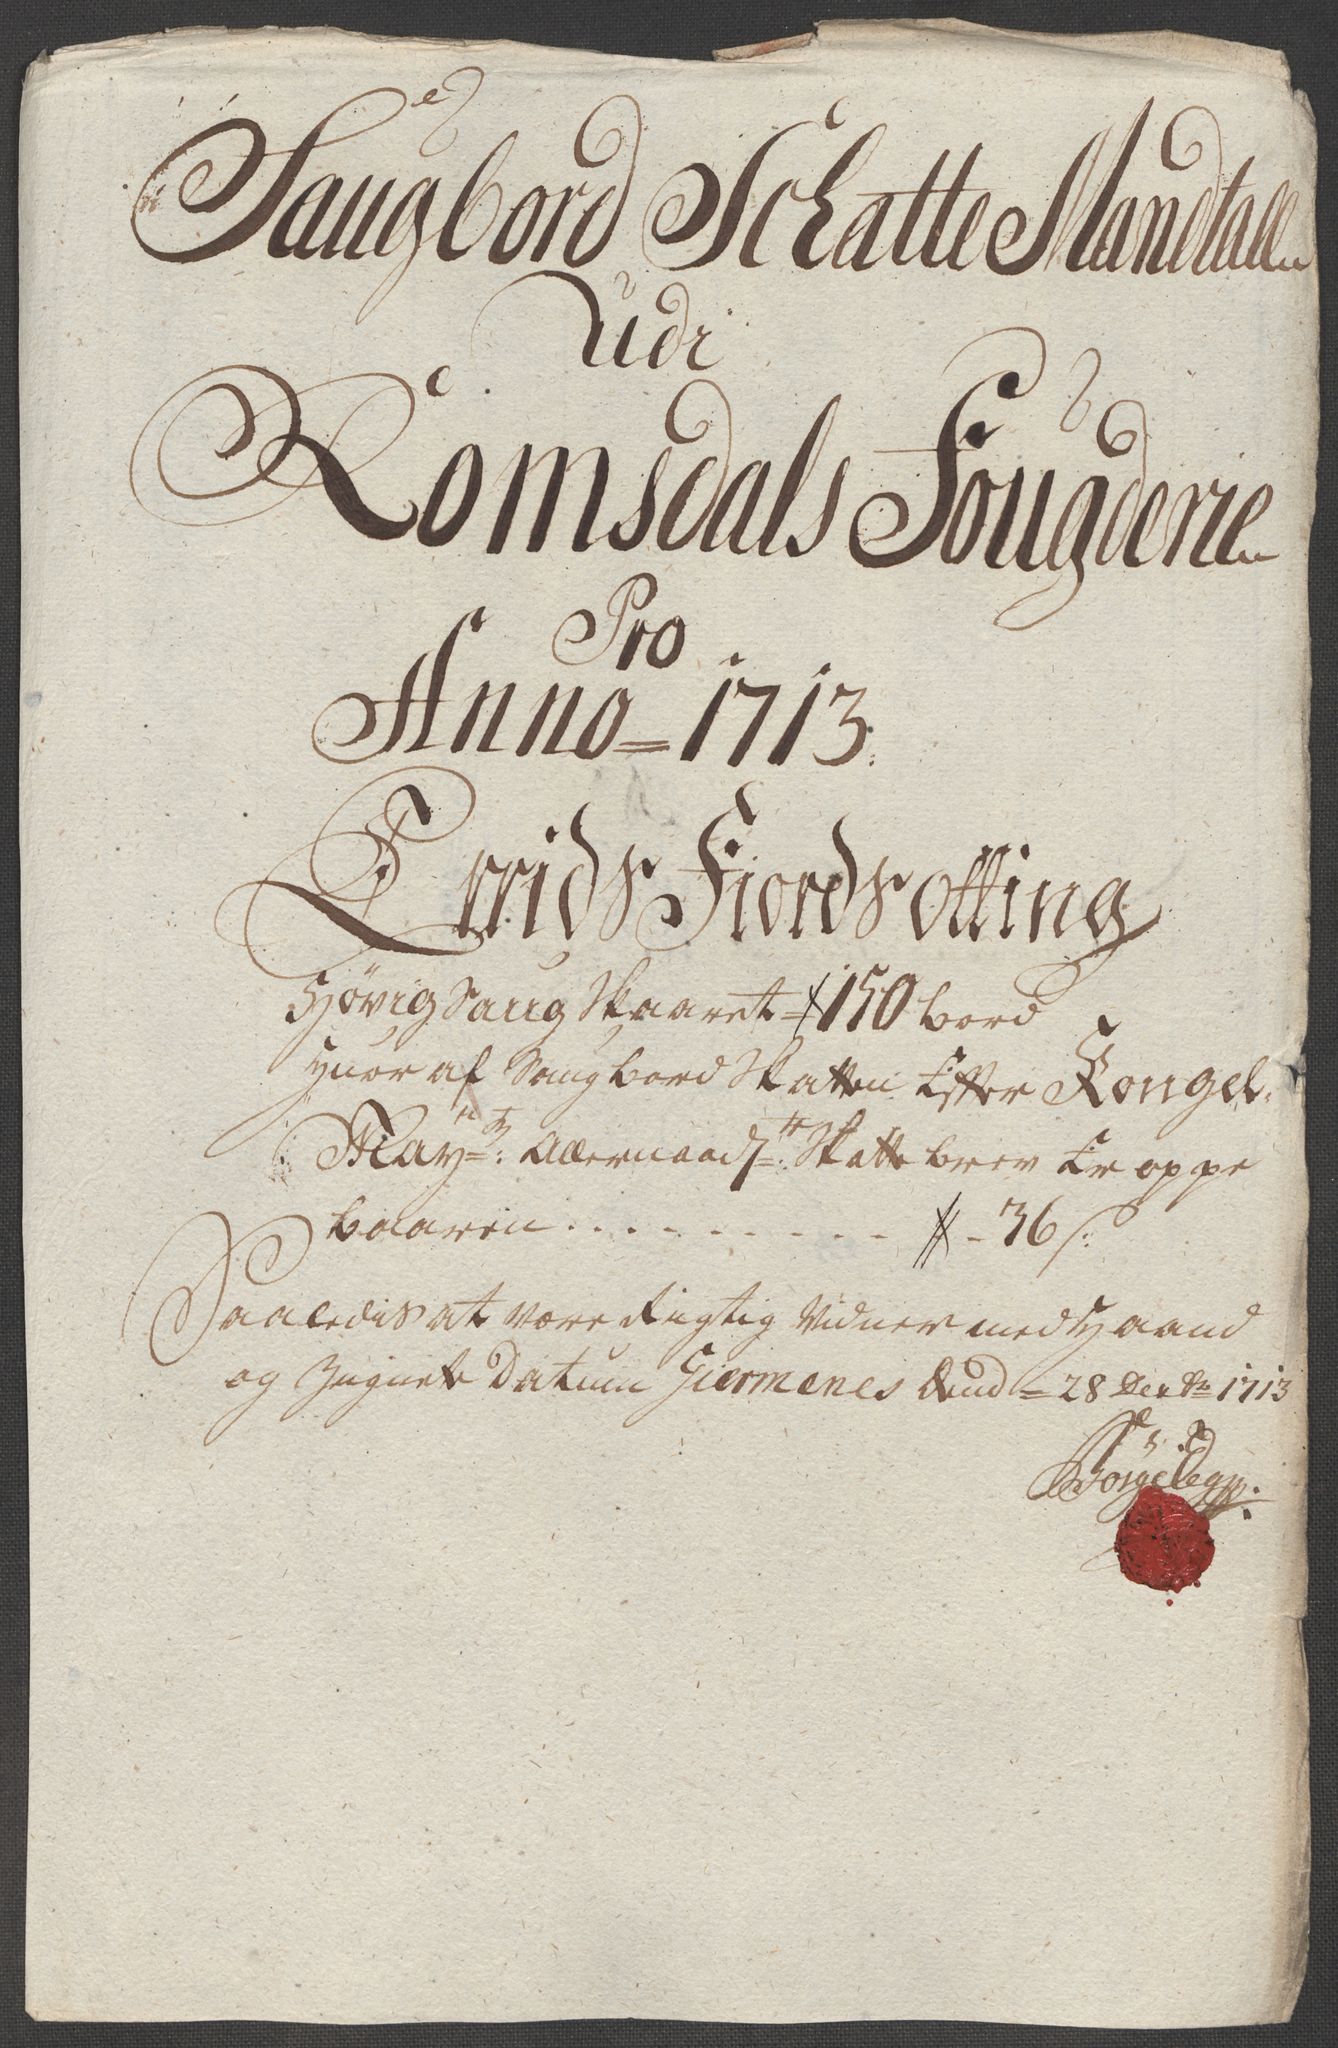 Saugbord Schatte Mandtall
Udi
Romsdals Fougderie
Pro
Anno = 1713.
Erridsfiords otting
Høvig Saug Skaaret = 150 bord
Huor af Saugbord Skatten Efter Kongel:
May:tz: Allernaad:te: Skatte brev Er oppe
baaren . . . . . . . . . - 36 s:
Saaledis at være Rigtig Vidner med Haand
og Zignete Datum Giermenes Dend = 28 Dec:br 1713